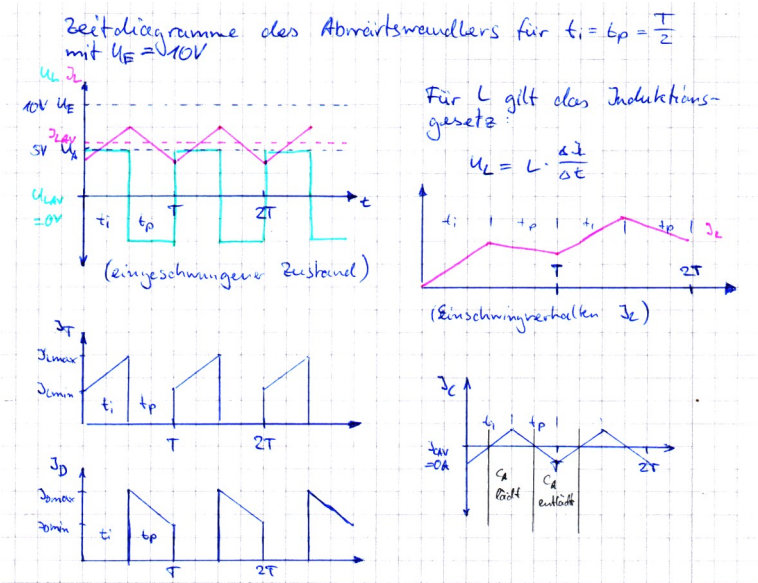 Zeitdiagramme des Abwärtswandlers für ti = tp = T/2
mit UE = 10V
UL IL
10V UE
ILAV
5V UA
ULAV
=0V
ti tp T 2T t
(eingeschwungener Zustand)
Für L gilt das Induktions-
gesetz:
UL = L · ΔI/Δt
ti tp ti tp IL
T 2T
(Einschwingverhalten IL)
IT
ILmax
ILmin
ti tp
T 2T
ID
IDmax
IDmin
ti tp
T 2T
IC
ti tp
ICAV
=0A
T 2T
CA lädt
CA entlädt